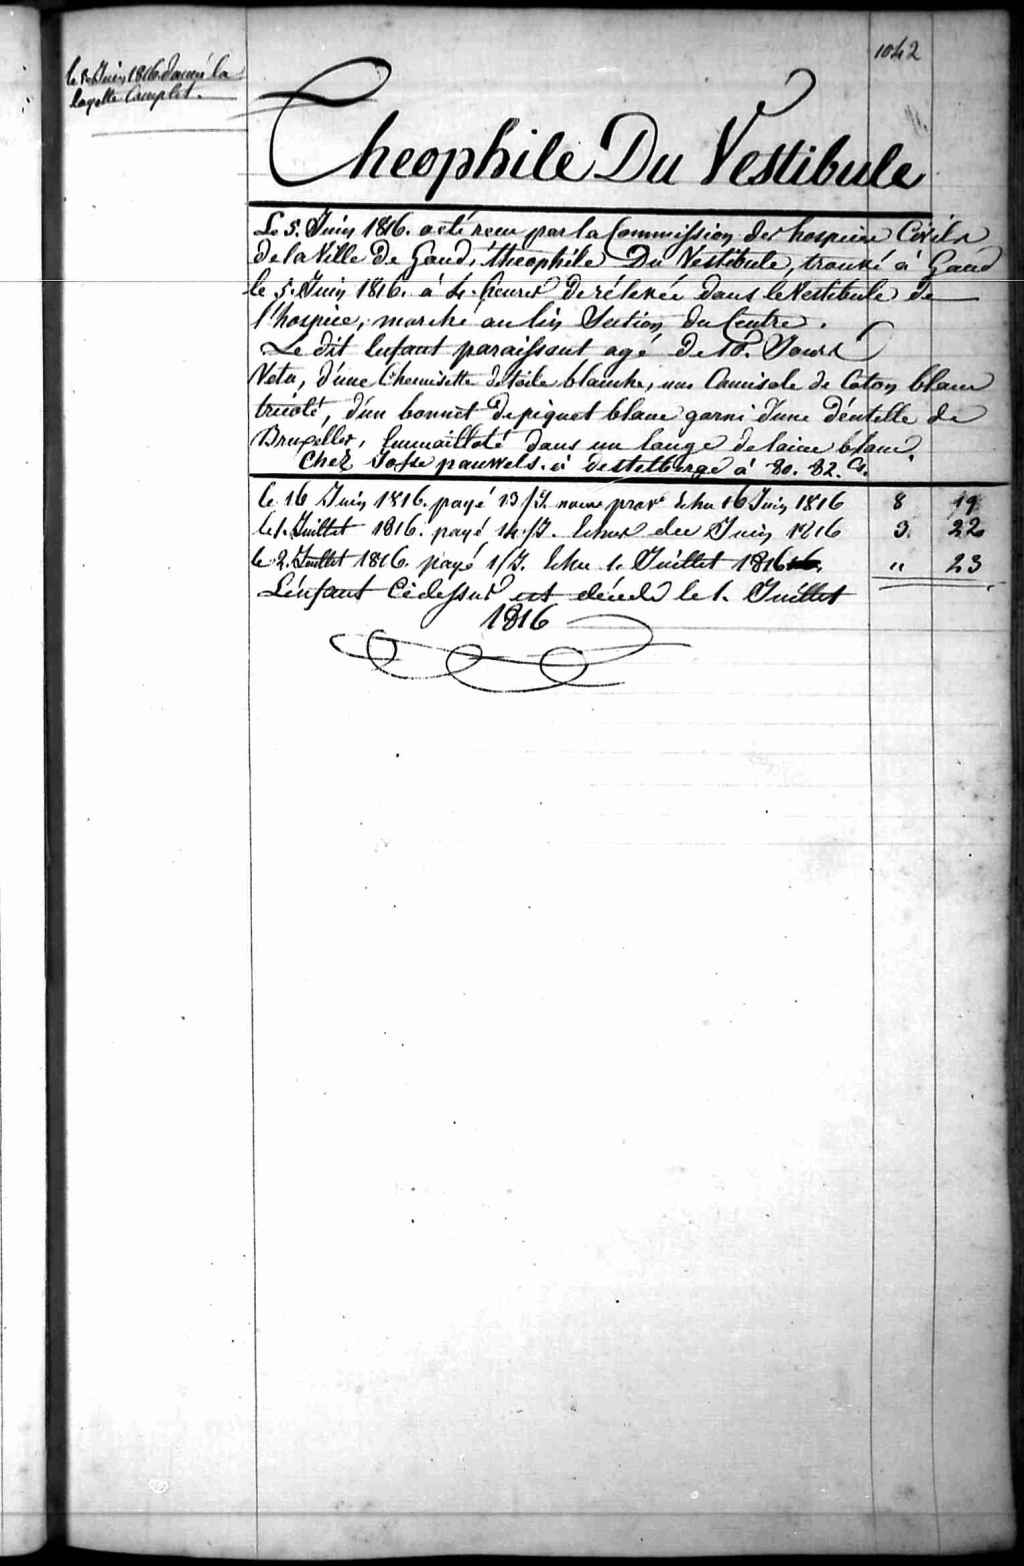 1042
le 8 Juin 1816 donné la
layette Complet.
Theophile Du Vestibule
Le 5. Juin 1816. a été recu par la Commission des hospices Civils
de la Ville De Gand, théophile Du Vestibule, trouvé à Gand
le 5. Juin 1816. à 4. heures De rélevée dans le Vestibule de
l'hospice, marché au lin Section du Centre.
Le dit Enfant paraissant agé De 10. Jours
Vetu, d'une Chemisette de toile blanche, une Camisole de Coton blanc
tricoté, d'un bonnet de piquet blanc garni d'une déntelle de
Bruxelles, Emmailloté dans un lange de laine blanc.
Chez Josse pauwels. à destelberge à 80. 82. Cs.
le 16 Juin 1816. payé 13/J. nour prove Echu 16 Juin 1816 8 19
le 1. Juillet 1816. payé 14/J. Echus du Juin 1816 3. 22
le 2. Juillet 1816. payé 1/J. Echu 1. Juillet 1816 " 23
L'énfant Cidessus est décédé le 1. Juillet
1816